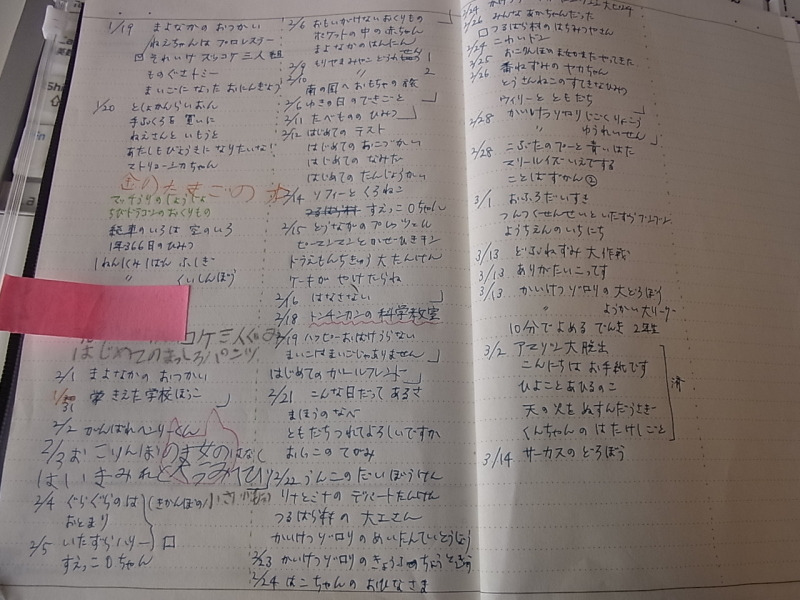 1/19 まよなかの おつかい
ねえちゃんは プロレスラー
それいけ ズッコケ 三人組
ものぐさトミー
まいごになった おにんぎょう
1/20 としょかんらいおん
手ぶくろを 買いに
ねえさんと いもうと
あたしもびょうきに なりたいな!
ストリョーシカちゃん
金のたまごの
マッチうりのしょうじょ
ちびドラゴンのおくりもの
のいろは 空のいろ
1年366日のひみつ
1ねん1くみ1ばん ふしぎ
〃 くいしんぼう
コケ三人ぐみ
はじめてのまっしろパンツ
2/1 まよなかの おつかい
1/31 きえた学校ぼうこ
2/2 がんばれヘンリーくん
2/3 おこりんぼのま女のはなし
はいきみれと
2/4 ぐらぐらのは (きかんぼの
おとまり
2/5 いたずらハリー
すえっこOちゃん
2/6 おもいがけない おくりもの
ポケットの中の赤ちゃん
まよなかの はんにん
2/9 もりやまみやこ どうわ 1
2/10 〃 2
南の国へ おもちゃの旅
2/6 ゆきの日の できごと
2/11 たべものの ひみつ
2/12 はじめての テスト
はじめての おこづかい
はじめての なみだ
はじめての たんじょうかい
2/14 ソフィーと くろねこ
すえっこOちゃん
2/15 どうなつの プレッツェル
ピーマンマンと かぜひきキン
ドラえもん ちきゅう 大たんけん
ケーキが やけたらね
2/16 はなさない
2/18 トンチンカンの 科学教室
2/19 ハッピーおばけうらない
まいごはまいごじゃありません
はじめての ガールフレンド
2/21 こんな日だって あるさ
まほうのなべ
ともだちつれてよろしいですか
おしっこの てがみ
2/22 うんこの だいぼうけん
リナとミナの デパートたんけん
つるばら村の 大工さん
かいけつゾロリの めいたんていとうじょう
2/23 かいけつゾロリの きょうふの ちょうとっきゅう
2/24 はこちゃんの おひなさま
2/24
2/26 みんな あかちゃんだった
つるばら村の はちみつやさん
2/24 こわいドン
2/25 おこりんぼの ま女がまたやってきた
2/26 番ねずみの ヤカちゃん
とうさんねこの すてきなひみつ
ウィリーと ともだち
2/28 かいけつゾロリ じごくりょこう
〃 ゆうれいせん
2/28 こぶたのプーと 青いはた
マリールイズいえでする
ことばずかん ②
3/1 おふろだいすき
つんつくせんせいと いたずらブンブン
ようちえんの いちにち
3/13 どぶねずみ 大作戦
3/13 ありがたいこってす
3/13 かいけつゾロリの 大どろぼう
〃 ようかい大リーグ
10分でよめる でんき 2年生
3/2 アマリリン 大脱出
こんにちは お手紙です
ひよことあひるのこ
天の火を ぬすんだうさぎ
くんちゃんの はたけしごと
済
3/14 サーカスの どろぼう